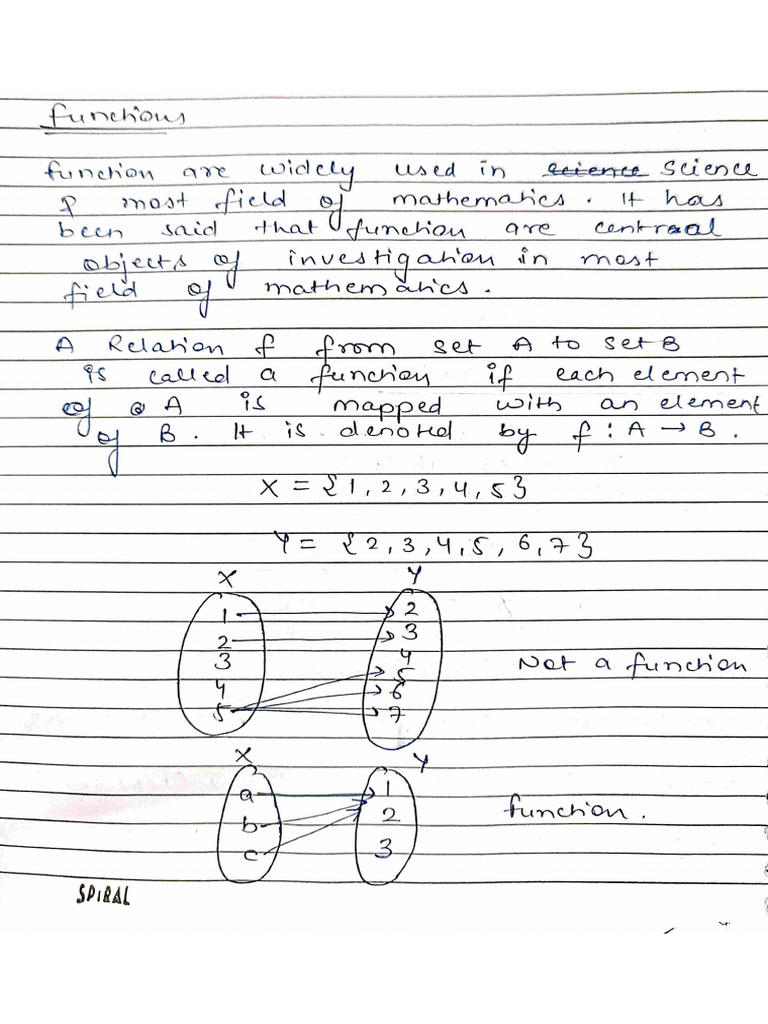 Functions
function are widely used in science Science
& most field of mathematics. It has
been said that function are centraal
objects of investigation in most
field of mathematics.
A Relation f from set A to set B
is called a function if each element
of A is mapped with an element
of B. It is denoted by f : A → B.
X = {1, 2, 3, 4, 5}
Y = {2, 3, 4, 5, 6, 7}
X Y
1 2
2 3
3 4
Not a function
4 5
6
5 7
X Y
a 1
b 2
function.
c 3
SPIRAL